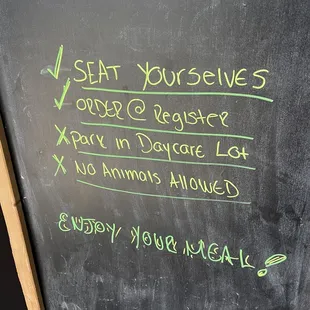 ✓ SEAT YOURSELVES
✓ ORDER @ Register
X Park in Daycare Lot
X NO ANimals AllOWED
ENJOY YOUR MEAL!